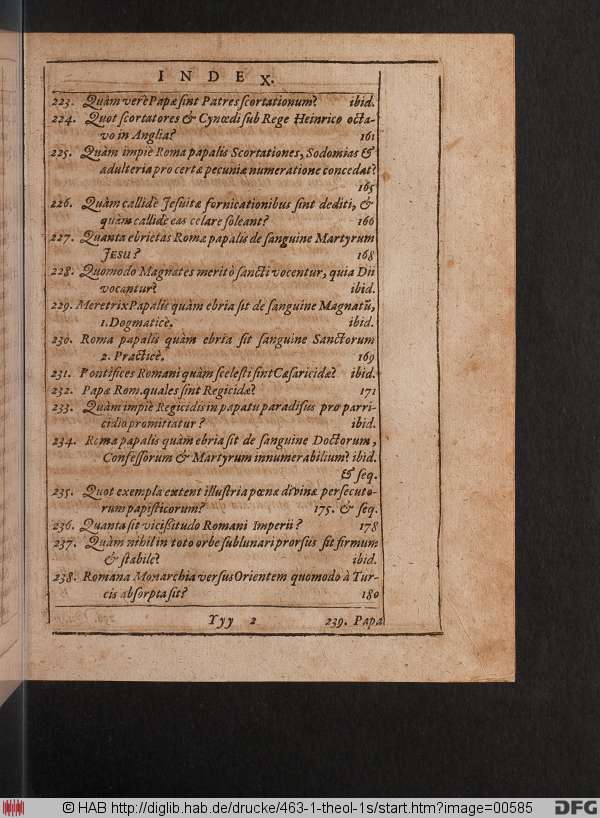 INDEX.
223. Quàm verè Papæ sint Patres scortationum? ibid.
224. Quot scortatores & Cynœdi sub Rege Heinrico octa-
vo in Anglia? 161
225. Quàm impiè Roma papalis Scortationes, Sodomias &
adulteria pro certæ pecuniæ numeratione concedat?
165
226. Quàm callidè Jesuitæ fornicationibus sint dediti, &
quàm callidè eas celare soleant? 166
227. Quanta ebrietas Romæ papalis de sanguine Martyrum
JESU? 168
228. Quomodo Magnates meritò sancti vocentur, quia Dii
vocantur? ibid.
229. Meretrix Papalis quàm ebria sit de sanguine Magnatũ,
1. Dogmaticè. ibid.
230. Roma papalis quàm ebria sit sanguine Sanctorum
2. Practicè. 169
231. Pontifices Romani quàm scelesti sint Cæsaricidæ? ibid.
232. Papæ Rom. quales sint Regicidæ? 171
233. Quàm impiè Regicidis in papatu paradisus pro parri-
cidio promittatur? ibid.
234. Roma papalis quàm ebria sit de sanguine Doctorum,
Confessorum & Martyrum innumerabilium? ibid.
& seq.
235. Quot exempla extent illustria pœnæ divinæ persecuto-
rum papisticorum? 175. & seq.
236. Quanta sit vicissitudo Romani Imperii? 178
237. Quàm nihil in toto orbe sublunari prorsus sit firmum
& stabile? ibid.
238. Romana Monarchia versus Orientem quomodo à Tur-
cis absorpta sit? 180
Yyy 2 239. Papa
© HAB http://diglib.hab.de/drucke/463-1-theol-1s/start.htm?image=00585
DFG